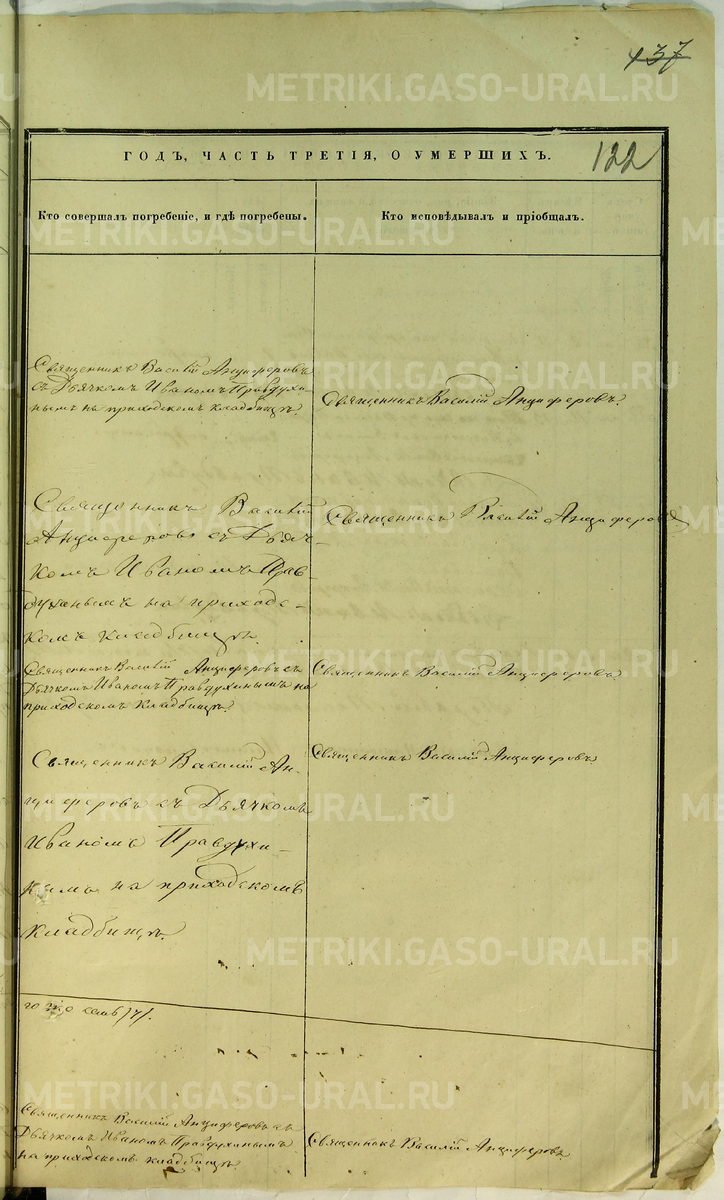 437
ГОДЪ, ЧАСТЬ ТРЕТІЯ, О УМЕРШИХЪ.
122
Кто совершалъ погребеніе, и гдѣ погребены.
Кто исповѣдывалъ и пріобщалъ.
Священникъ Василій Анциферовъ
съ Дьячкомъ Иваномъ Правдухи-
нымъ на приходскомъ кладбищѣ.
Священникъ Василій Анциферовъ.
Священникъ Василій
Анциферовъ съ Дьяч-
комъ Иваномъ Прав-
духинымъ на приходс-
комъ кладбищѣ.
Священникъ Василій Анциферовъ
Священникъ Василій Анциферовъ съ
Дьячкомъ Иваномъ Правдухинымъ на
приходскомъ кладбищѣ.
Священникъ Василій Анциферовъ
Священникъ Василій Ан-
циферовъ съ Дьячкомъ
Иваномъ Правдухи-
нымъ на приходскомъ
кладбищѣ.
Священникъ Василій Анциферовъ.
Священникъ Василій Анциферовъ съ
Дьячкомъ Иваномъ Правдухинымъ
на приходскомъ кладбищѣ
Священникъ Василій Анциферовъ
METRIKI.GASO-URAL.RU